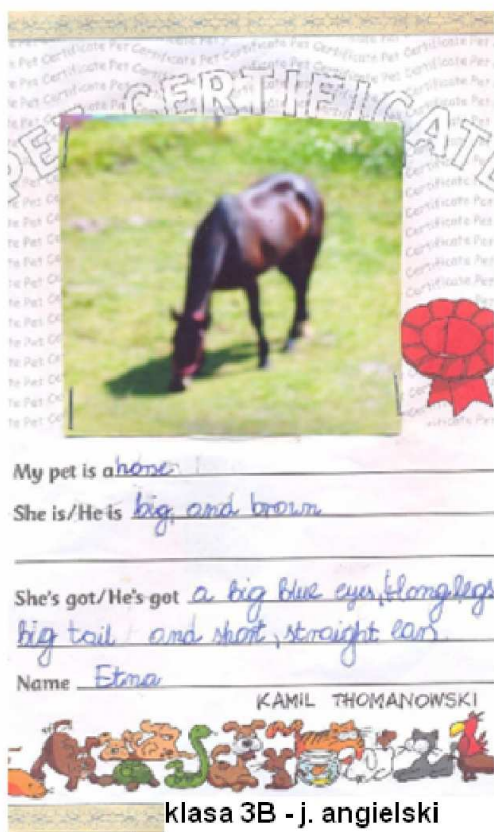 PET CERTIFICATE
My pet is a horse
She is/He is big, and brown
She's got/He's got a big blue eyes, long legs
big tail and short, straight ears
Name Etna
KAMIL THOMANOWSKI
klasa 3B - j. angielski